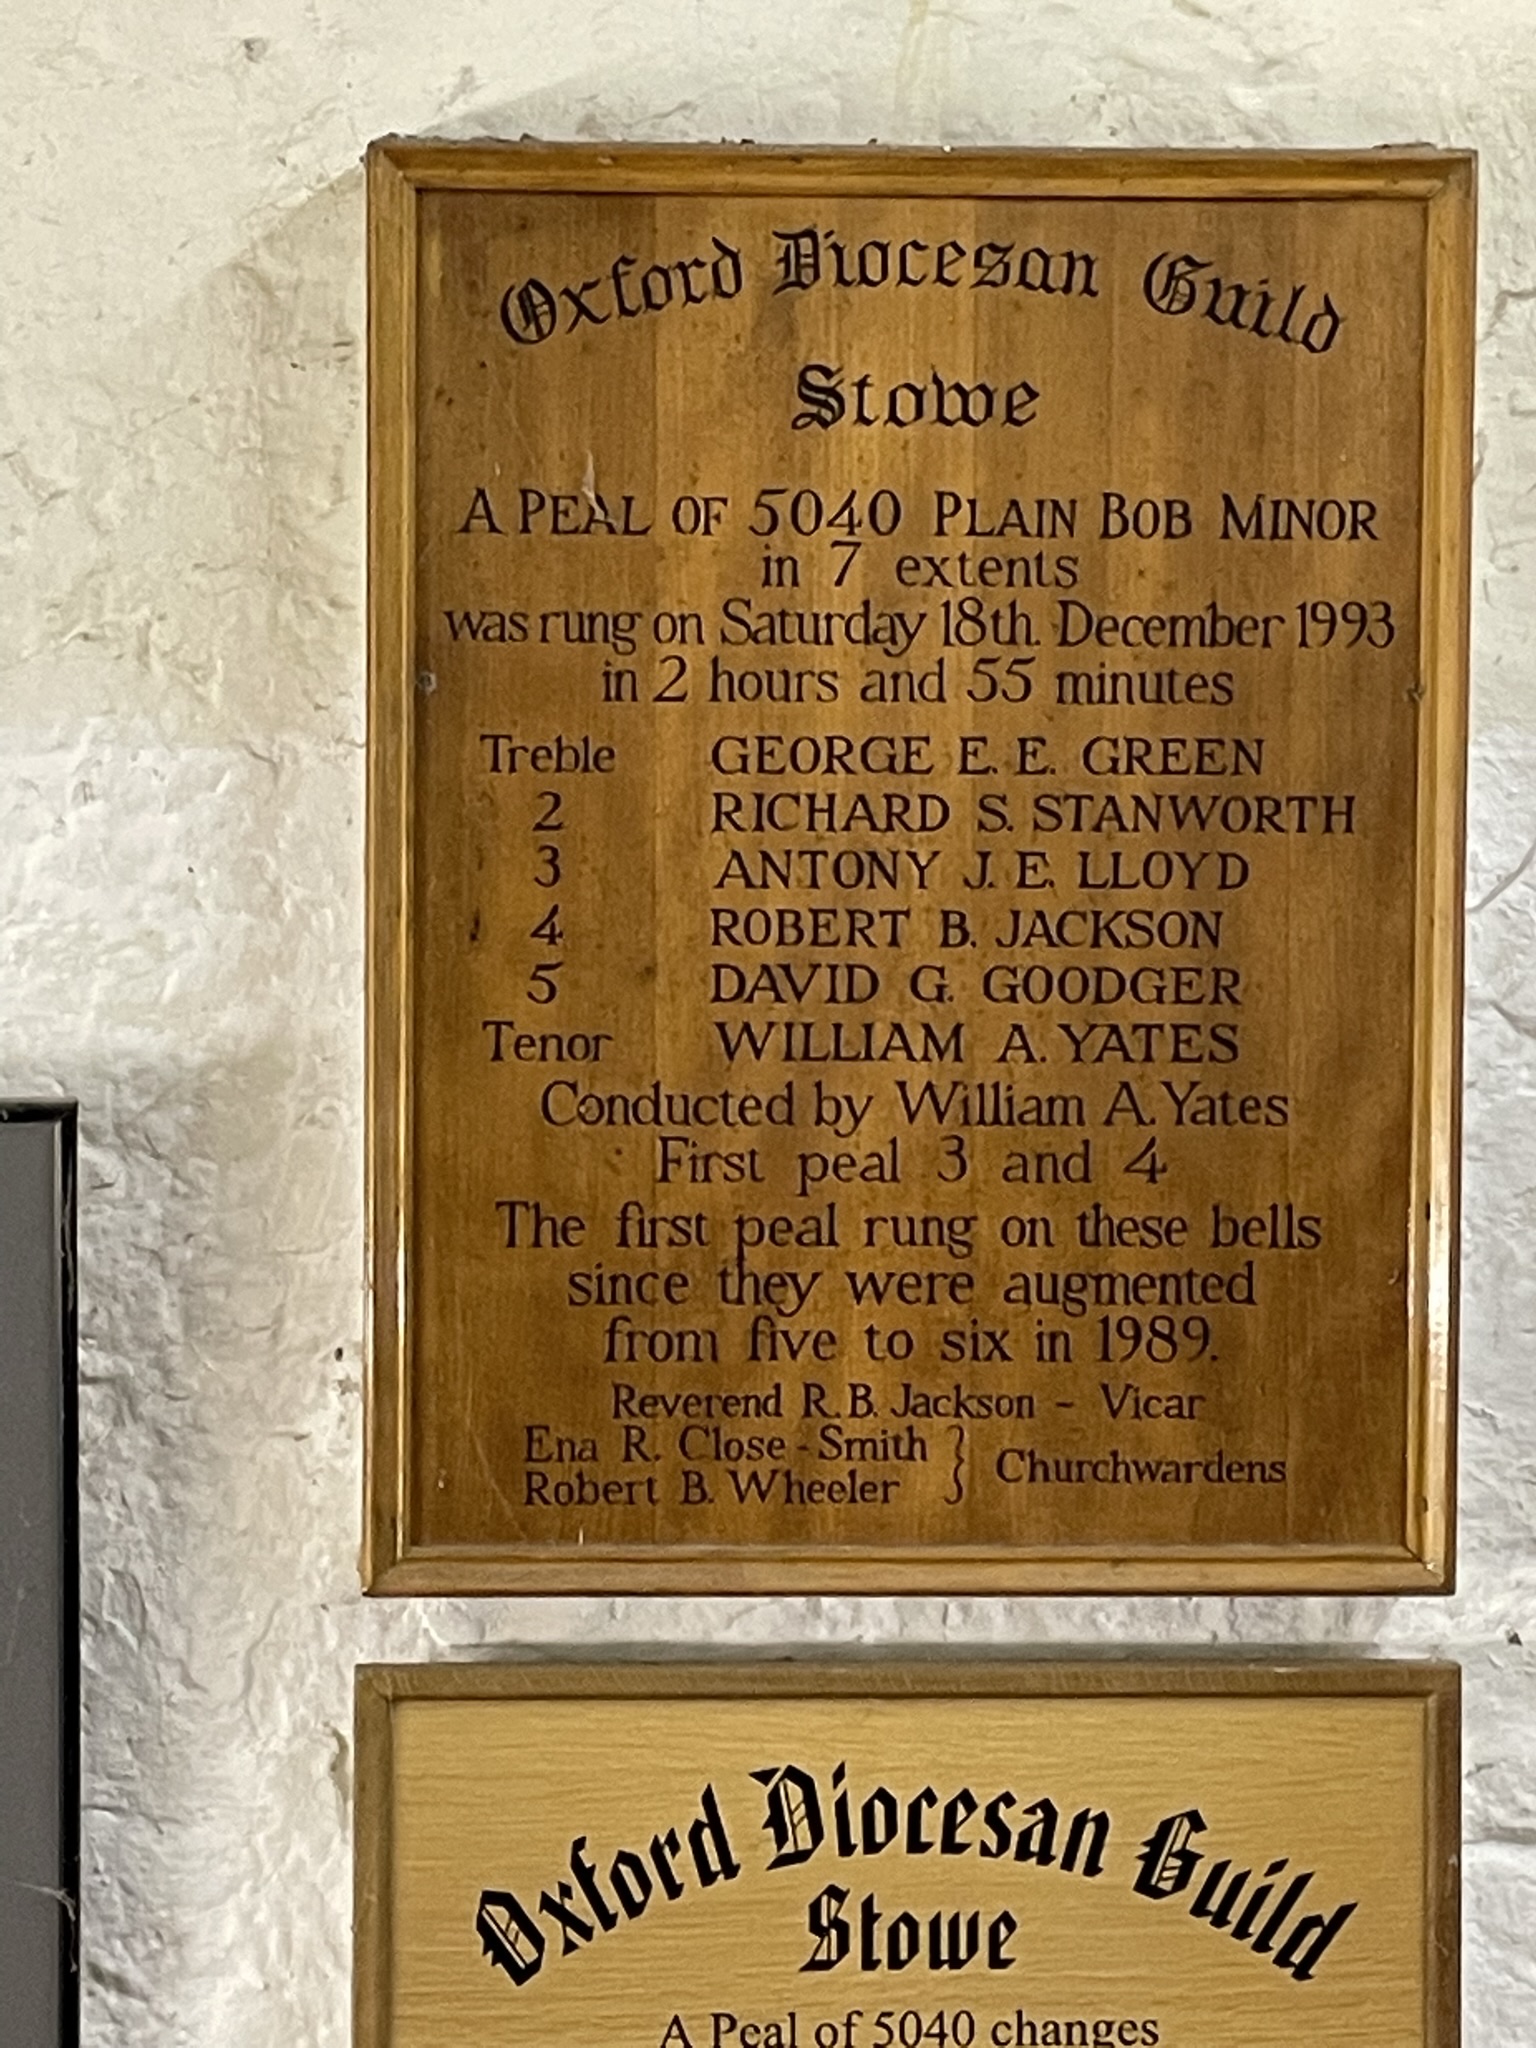 Oxford Diocesan Guild
Stowe
A PEAL OF 5040 PLAIN BOB MINOR
in 7 extents
was rung on Saturday 18th. December 1993
in 2 hours and 55 minutes
Treble GEORGE E. E. GREEN
2 RICHARD S. STANWORTH
3 ANTONY J. E. LLOYD
4 ROBERT B. JACKSON
5 DAVID G. GOODGER
Tenor WILLIAM A. YATES
Conducted by William A. Yates
First peal 3 and 4
The first peal rung on these bells
since they were augmented
from five to six in 1989.
Reverend R. B. Jackson - Vicar
Ena R. Close-Smith
Robert B. Wheeler } Churchwardens
Oxford Diocesan Guild
Stowe
A Peal of 5040 changes